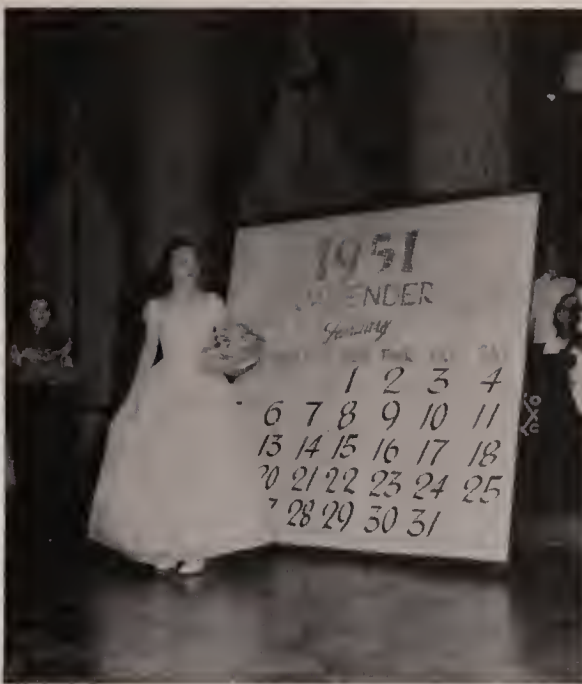 1951
ENDER
January
1 2 3 4
6 7 8 9 10 11
13 14 15 16 17 18
20 21 22 23 24 25
7 28 29 30 31